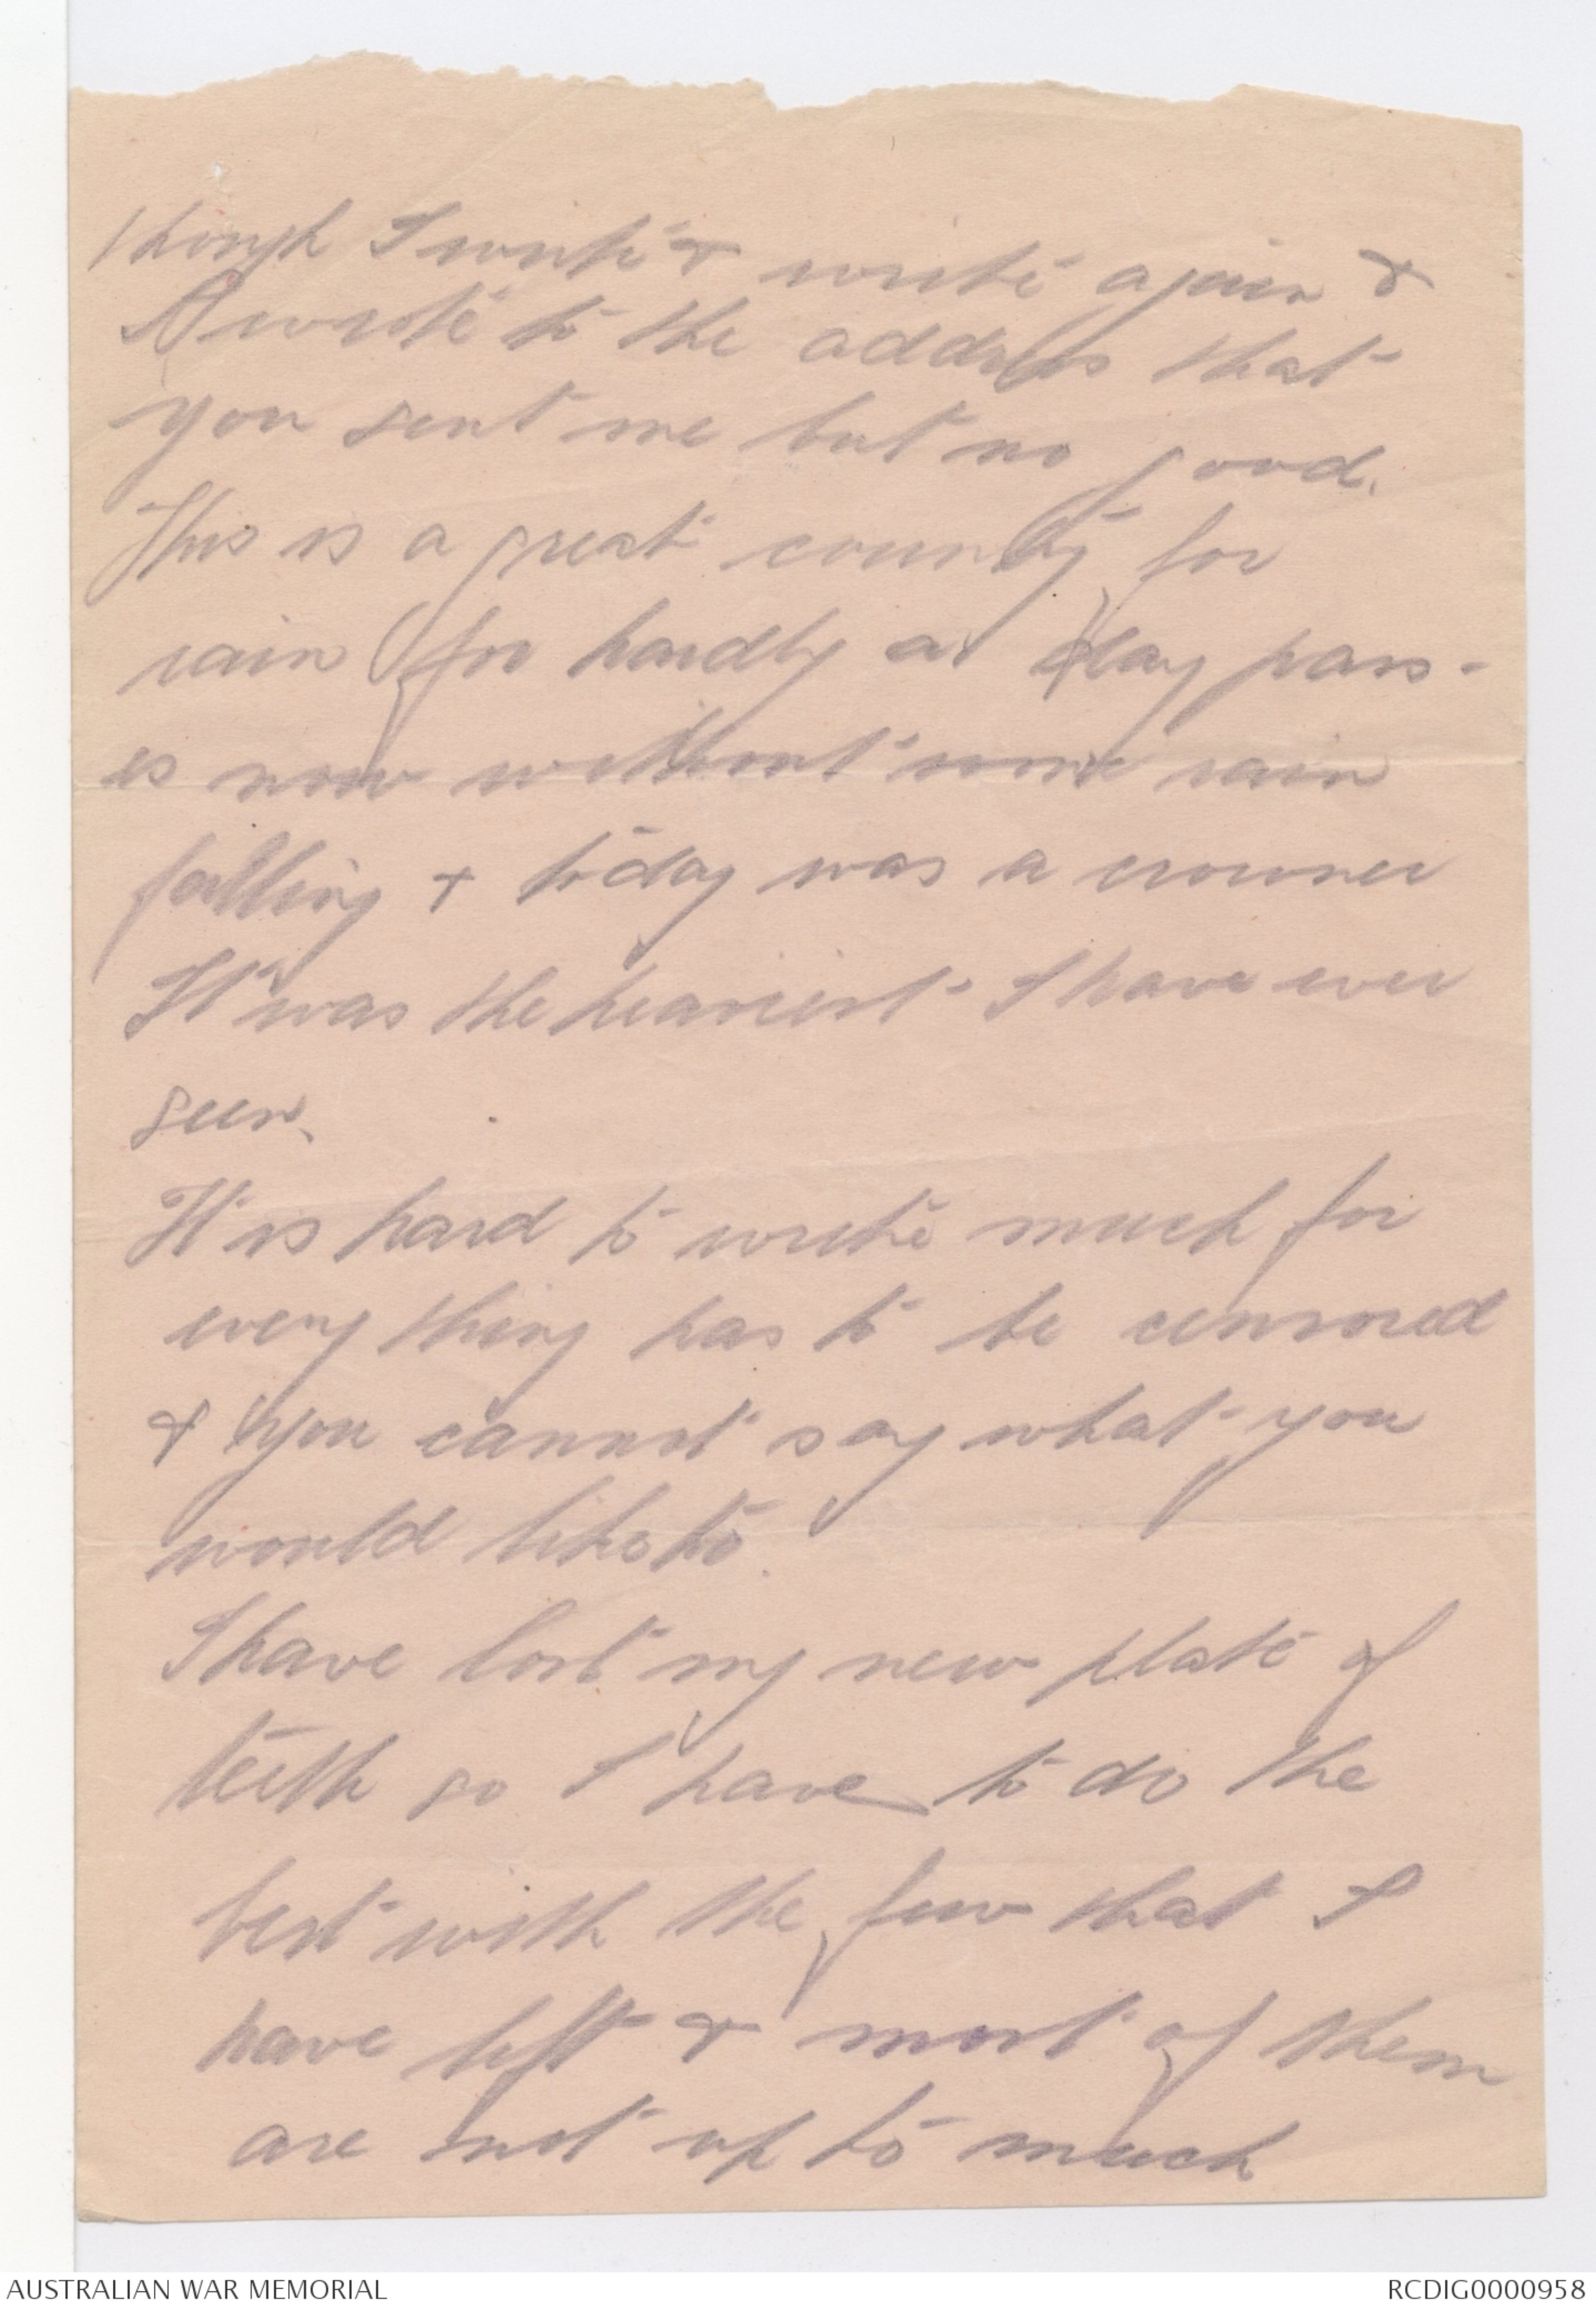 though I write & write again &
I wrote to the address that
you sent me but no good.
This is a great country for
rain for hardly a day pass-
es now without some rain
falling & today was a crowner
It was the heaviest I have ever
seen.
It is hard to write much for
every thing has to be censored
& you cannot say what you
would like to.
I have lost my new plate of
teeth so I have to do the
best with the few that I
have left & most of them
are not up to much
AUSTRALIAN WAR MEMORIAL
RCDIG0000958